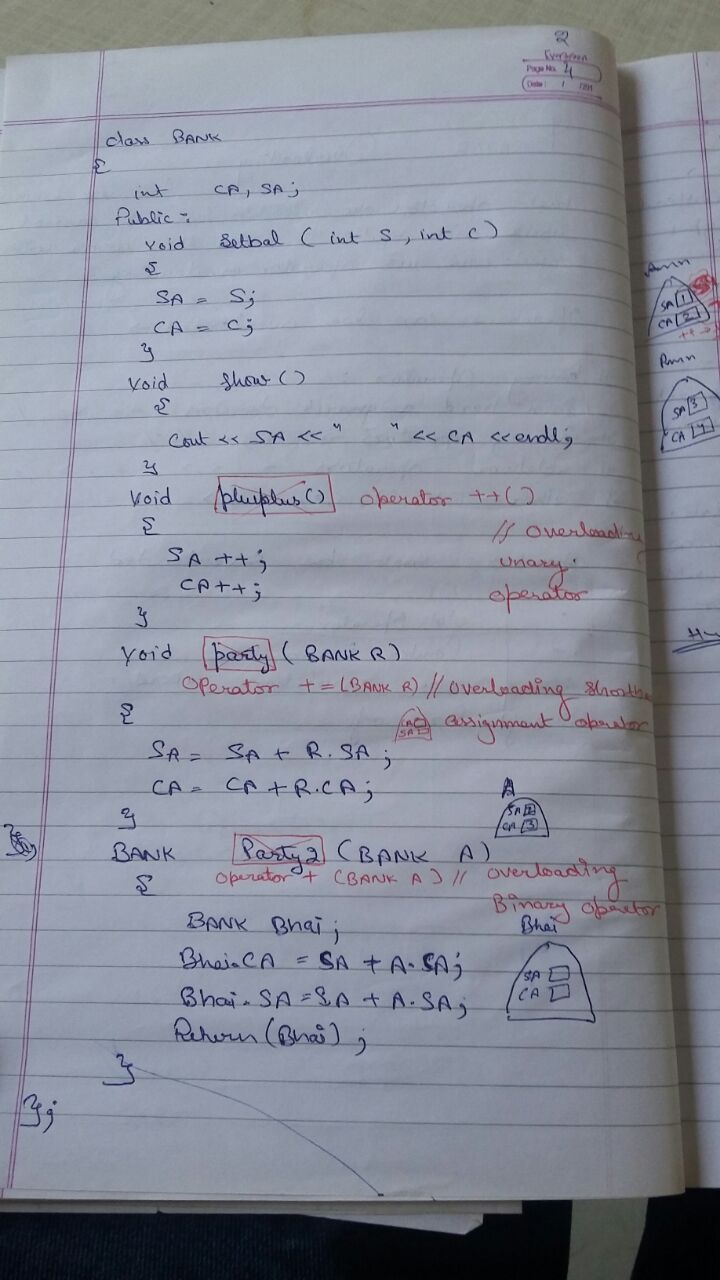 2
Evergreen
Page No. 4
Date: / /201
class BANK
{
int CA, SA;
Public:
void Setbal ( int S, int C)
{
SA = S;
CA = C;
}
void Show ()
{
Cout << SA << " " << CA << endl;
}
void plusplus() operator ++()
{ // Overloading
SA ++; unary.
CA++; operator
}
void party ( BANK R)
Operator += (BANK R) // Overloading Shortha
{ CA SA assignment operator
SA = SA + R. SA;
CA = CA + R. CA;
}
A
SA 2
CA 3
BANK Party2 (BANK A)
Operator + (BANK A) // overloading
{ Binary operator
BANK Bhai;
Bhai.CA = SA + A. SA;
Bhai. SA = SA + A. SA;
Return (Bhai);
}
};
Bhai
SA
CA
Amn
SA 1
CA 2
++
Amn
SA 3
CA